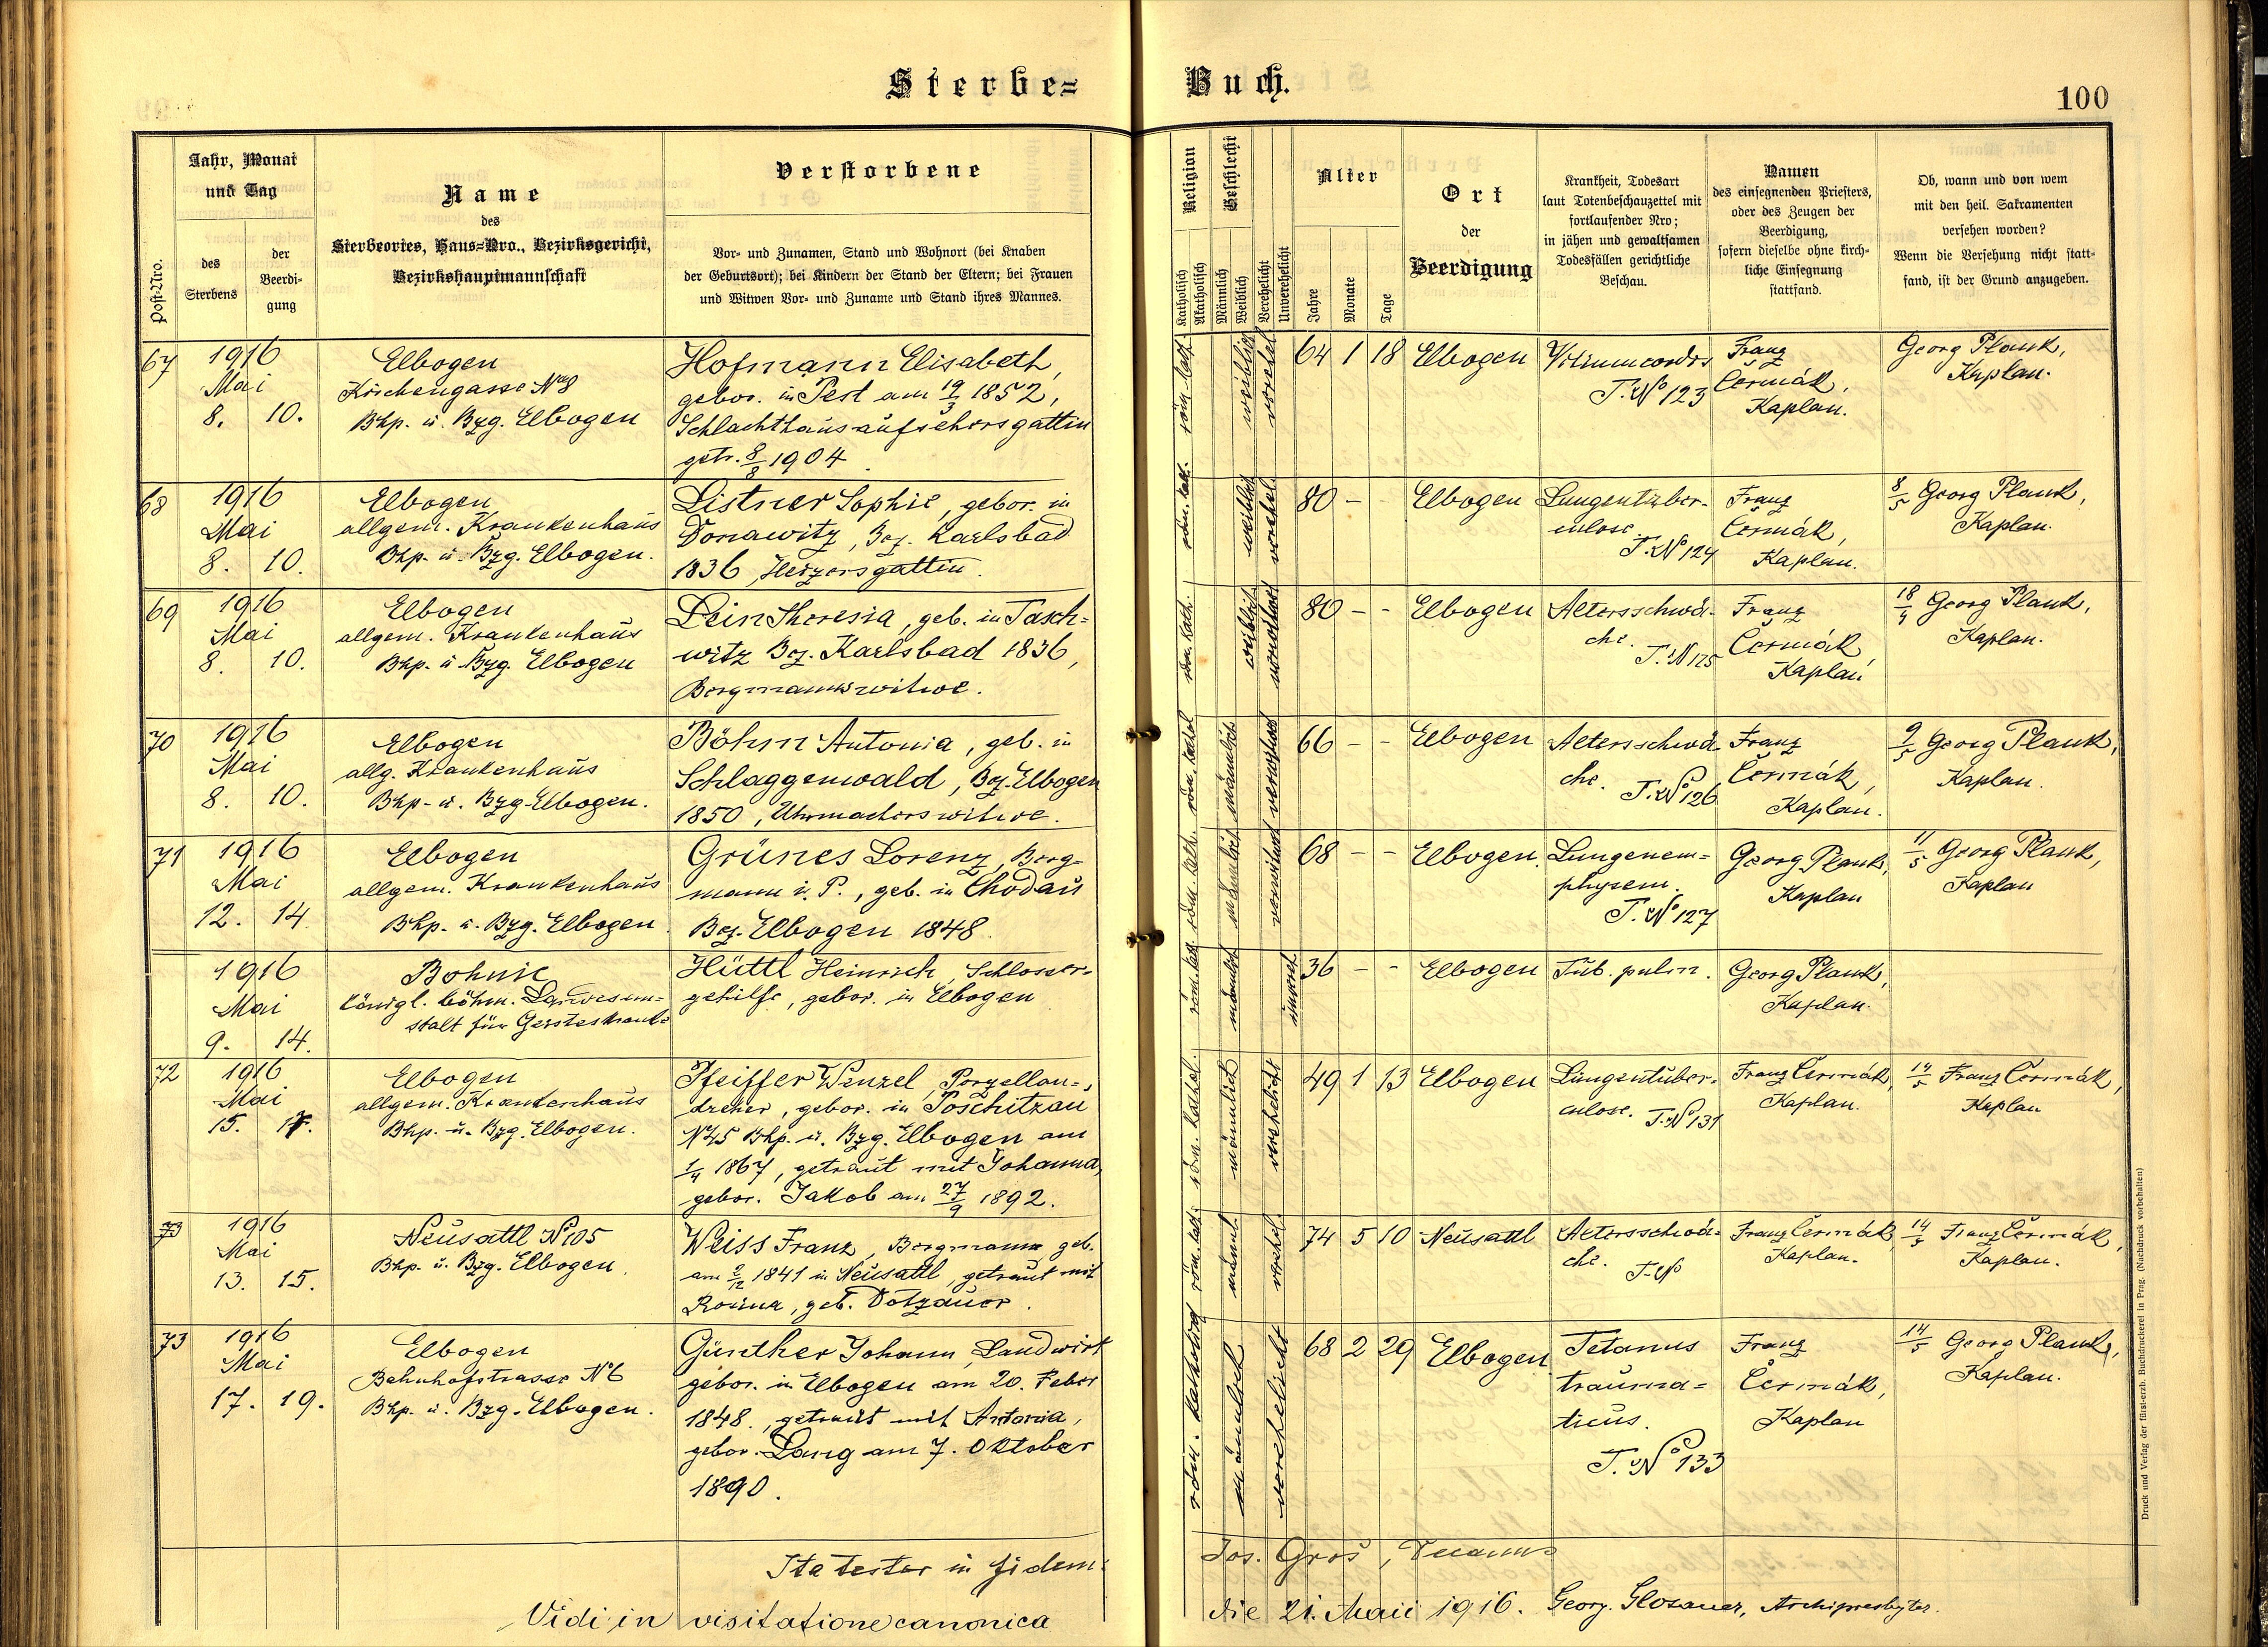 Sterbe=
Buch.
100
Post-Nro.
Jahr, Monat
und Tag
des
Sterbens
der
Beerdi-
gung
Name
des
Sterbeortes, Haus-Nro., Bezirksgericht,
Bezirkshauptmannschaft
Verstorbene
Vor- und Zunamen, Stand und Wohnort (bei Knaben
der Geburtsort); bei Kindern der Stand der Eltern; bei Frauen
und Witwen Vor- und Zuname und Stand ihres Mannes.
Religion
Katholisch
Akatholisch
Geschlecht
Männlich
Weiblich
Verehelicht
Unverehelicht
Alter
Jahre
Monate
Tage
Ort
der
Beerdigung
Krankheit, Todesart
laut Totenbeschauzettel mit
fortlaufender Nro;
in jähen und gewaltsamen
Todesfällen gerichtliche
Beschau.
Namen
des einsegnenden Priesters,
oder des Zeugen der
Beerdigung,
sofern dieselbe ohne kirch-
liche Einsegnung
stattfand.
Ob, wann und von wem
mit den heil. Sakramenten
versehen worden?
Wenn die Versehung nicht statt-
fand, ist der Grund anzugeben.
67
1916
Mai
8. 10.
Elbogen
Kirchengasse No 8
Bhp. u. Bzg. Elbogen
Hofmann Elisabeth,
gebor. in Pest am 19/3 1852,
Schlachthausaufsehersgattin
getr. 8/8 1904
röm. kath.
weiblich
verehel.
64 1 18
Elbogen
Vitium cordis
T. No 123
Franz
Čermák,
Kaplan.
Georg Plank,
Kaplan.
68
1916
Mai
8. 10.
Elbogen
allgem. Krankenhaus
Bhp. u. Bzg. Elbogen.
Listner Sophie, gebor. in
Donawitz, Bez. Karlsbad
1836, Heizersgattin.
röm. kat.
weiblich
verehel.
80 -
Elbogen
Lungentuber-
culose.
T. No 124
Franz
Čermák,
Kaplan.
8/5 Georg Plank,
Kaplan.
69
1916
Mai
8. 10.
Elbogen
allgem. Krankenhaus
Bhp. u. Bzg. Elbogen
Lein Theresia, geb. in Tasch=
witz Bez. Karlsbad 1836,
Bergmannswitwe.
röm. kath.
weiblich
verwitwet
80 - -
Elbogen
Altersschwä-
che.
T. N 125
Franz
Čermák,
Kaplan
18/4 Georg Plank,
Kaplan.
70
1916
Mai
8. 10.
Elbogen
allg. Krankenhaus
Bhp. u. Bzg. Elbogen.
Böhm Antonia, geb. in
Schlaggenwald, Bez. Elbogen
1850, Uhrmacherswitwe.
röm. kathol
männlich
verwitwet
66 - -
Elbogen
Altersschwä-
che.
T. No 126
Franz
Čermák,
Kaplan.
9/5 Georg Plank,
Kaplan.
71
1916
Mai
12. 14
Elbogen
allgem. Krankenhaus
Bhp. u. Bzg. Elbogen
Grünes Lorenz, Berg-
mann i. P., geb. in Chodau
Bez. Elbogen 1848.
röm. kath.
männlich
verwitwet
68 - -
Elbogen.
Lungenem=
physem.
T. No 127
Georg Plank,
Kaplan
11/5 Georg Plank,
Kaplan
1916
Mai
9. 14.
Bohnic
königl. böhm. Landesan=
stalt für Geisteskranke
Hüttl Heinrich, Schlosser-
gehilfe, gebor. in Elbogen
röm. kath.
männlich
unvereh
36 - -
Elbogen
Tub. pulm.
Georg Plank,
Kaplan.
72
1916
Mai
15. 17.
Elbogen
allgem. Krankenhaus
Bhp. u. Bzg. Elbogen.
Pfeiffer Wenzel, Porzellan=
dreher, gebor. in Poschitzau
No 45 Bhp. u. Bzg. Elbogen am
1/4 1867, getraut mit Johanna,
gebor. Jakob am 27/9 1892.
röm. kathol.
männlich
verehelicht
49 1 13
Elbogen
Lungentuber-
culose. T. No 131
Franz Čermák,
Kaplan.
14/5 Franz Čermák,
Kaplan
73
1916
Mai
13. 15.
Neusattl No 105
Bhp. u. Bzg. Elbogen.
Weiss Franz, Bergmann, geb.
am 2/12 1841 in Neusattl, getraut mit
Rosina, geb. Dotzauer.
röm. kat.
männl.
verehel.
74 5 10
Neusattl
Altersschwä-
che. T. No
Franz Čermák,
Kaplan.
14/5 Franz Čermák,
Kaplan.
73
1916
Mai
17. 19.
Elbogen
Bahnhofstrasse No 6
Bhp. u. Bzg. Elbogen.
Günther Johann, Landwirt
gebor. in Elbogen am 20. Feber
1848., getraut mit Antonia,
gebor. Lang am 7. Oktober
1890.
röm. katholisch
männlich
verehelicht
68 2 29
Elbogen
Tetanus
trauma=
ticus.
T. No 133
Franz
Čermák,
Kaplan
14/5 Georg Plank,
Kaplan.
Ita testor in fidem:
Jos. Gros, Decanus
Vidi in visitatione canonica
die 21. Maii 1916. Georg. Glosauer, Archipresbyter.
Druck und Verlag der fürst-erzb. Buchdruckerei in Prag. (Nachdruck vorbehalten)